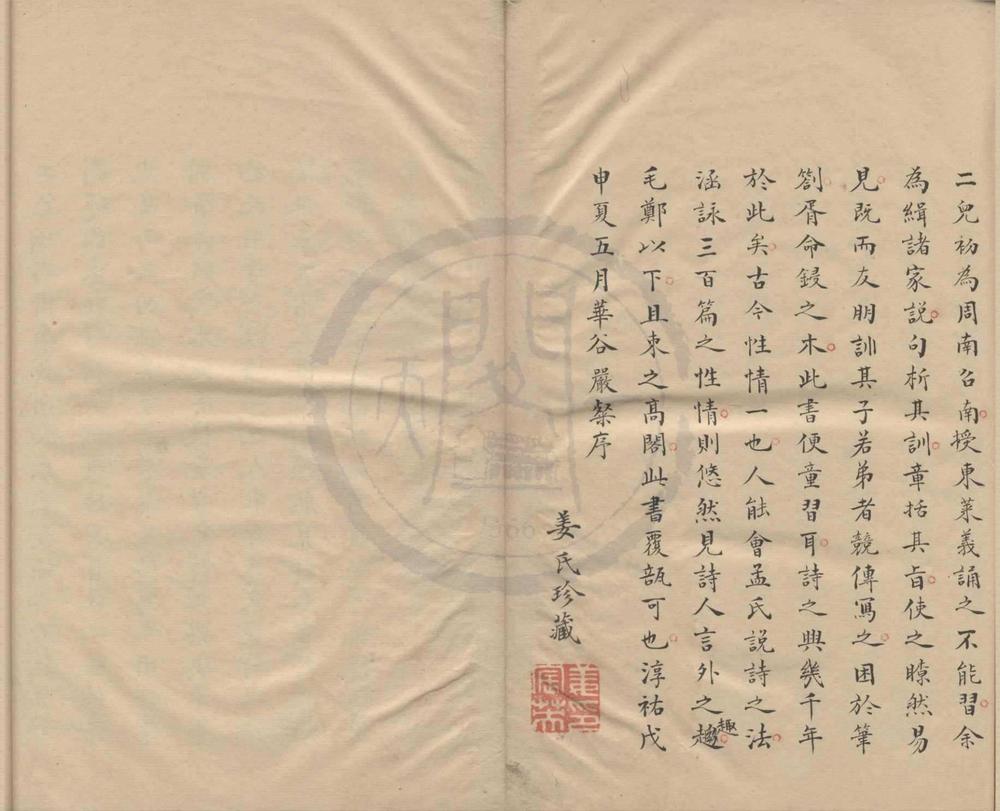 二兒初為周南召南授東萊義誦之不能習余
為緝諸家說句析其訓章括其旨使之瞭然易
見既而友朋訓其子若弟者競傳寫之困於筆
劄胥命鋟之木此書便童習耳詩之興幾千年
於此矣古今性情一也人能會孟氏說詩之法
涵詠三百篇之性情則悠然見詩人言外之趣
趣
毛鄭以下且束之高閣此書覆瓿可也淳祐戊
申夏五月華谷嚴粲序
姜氏珍藏